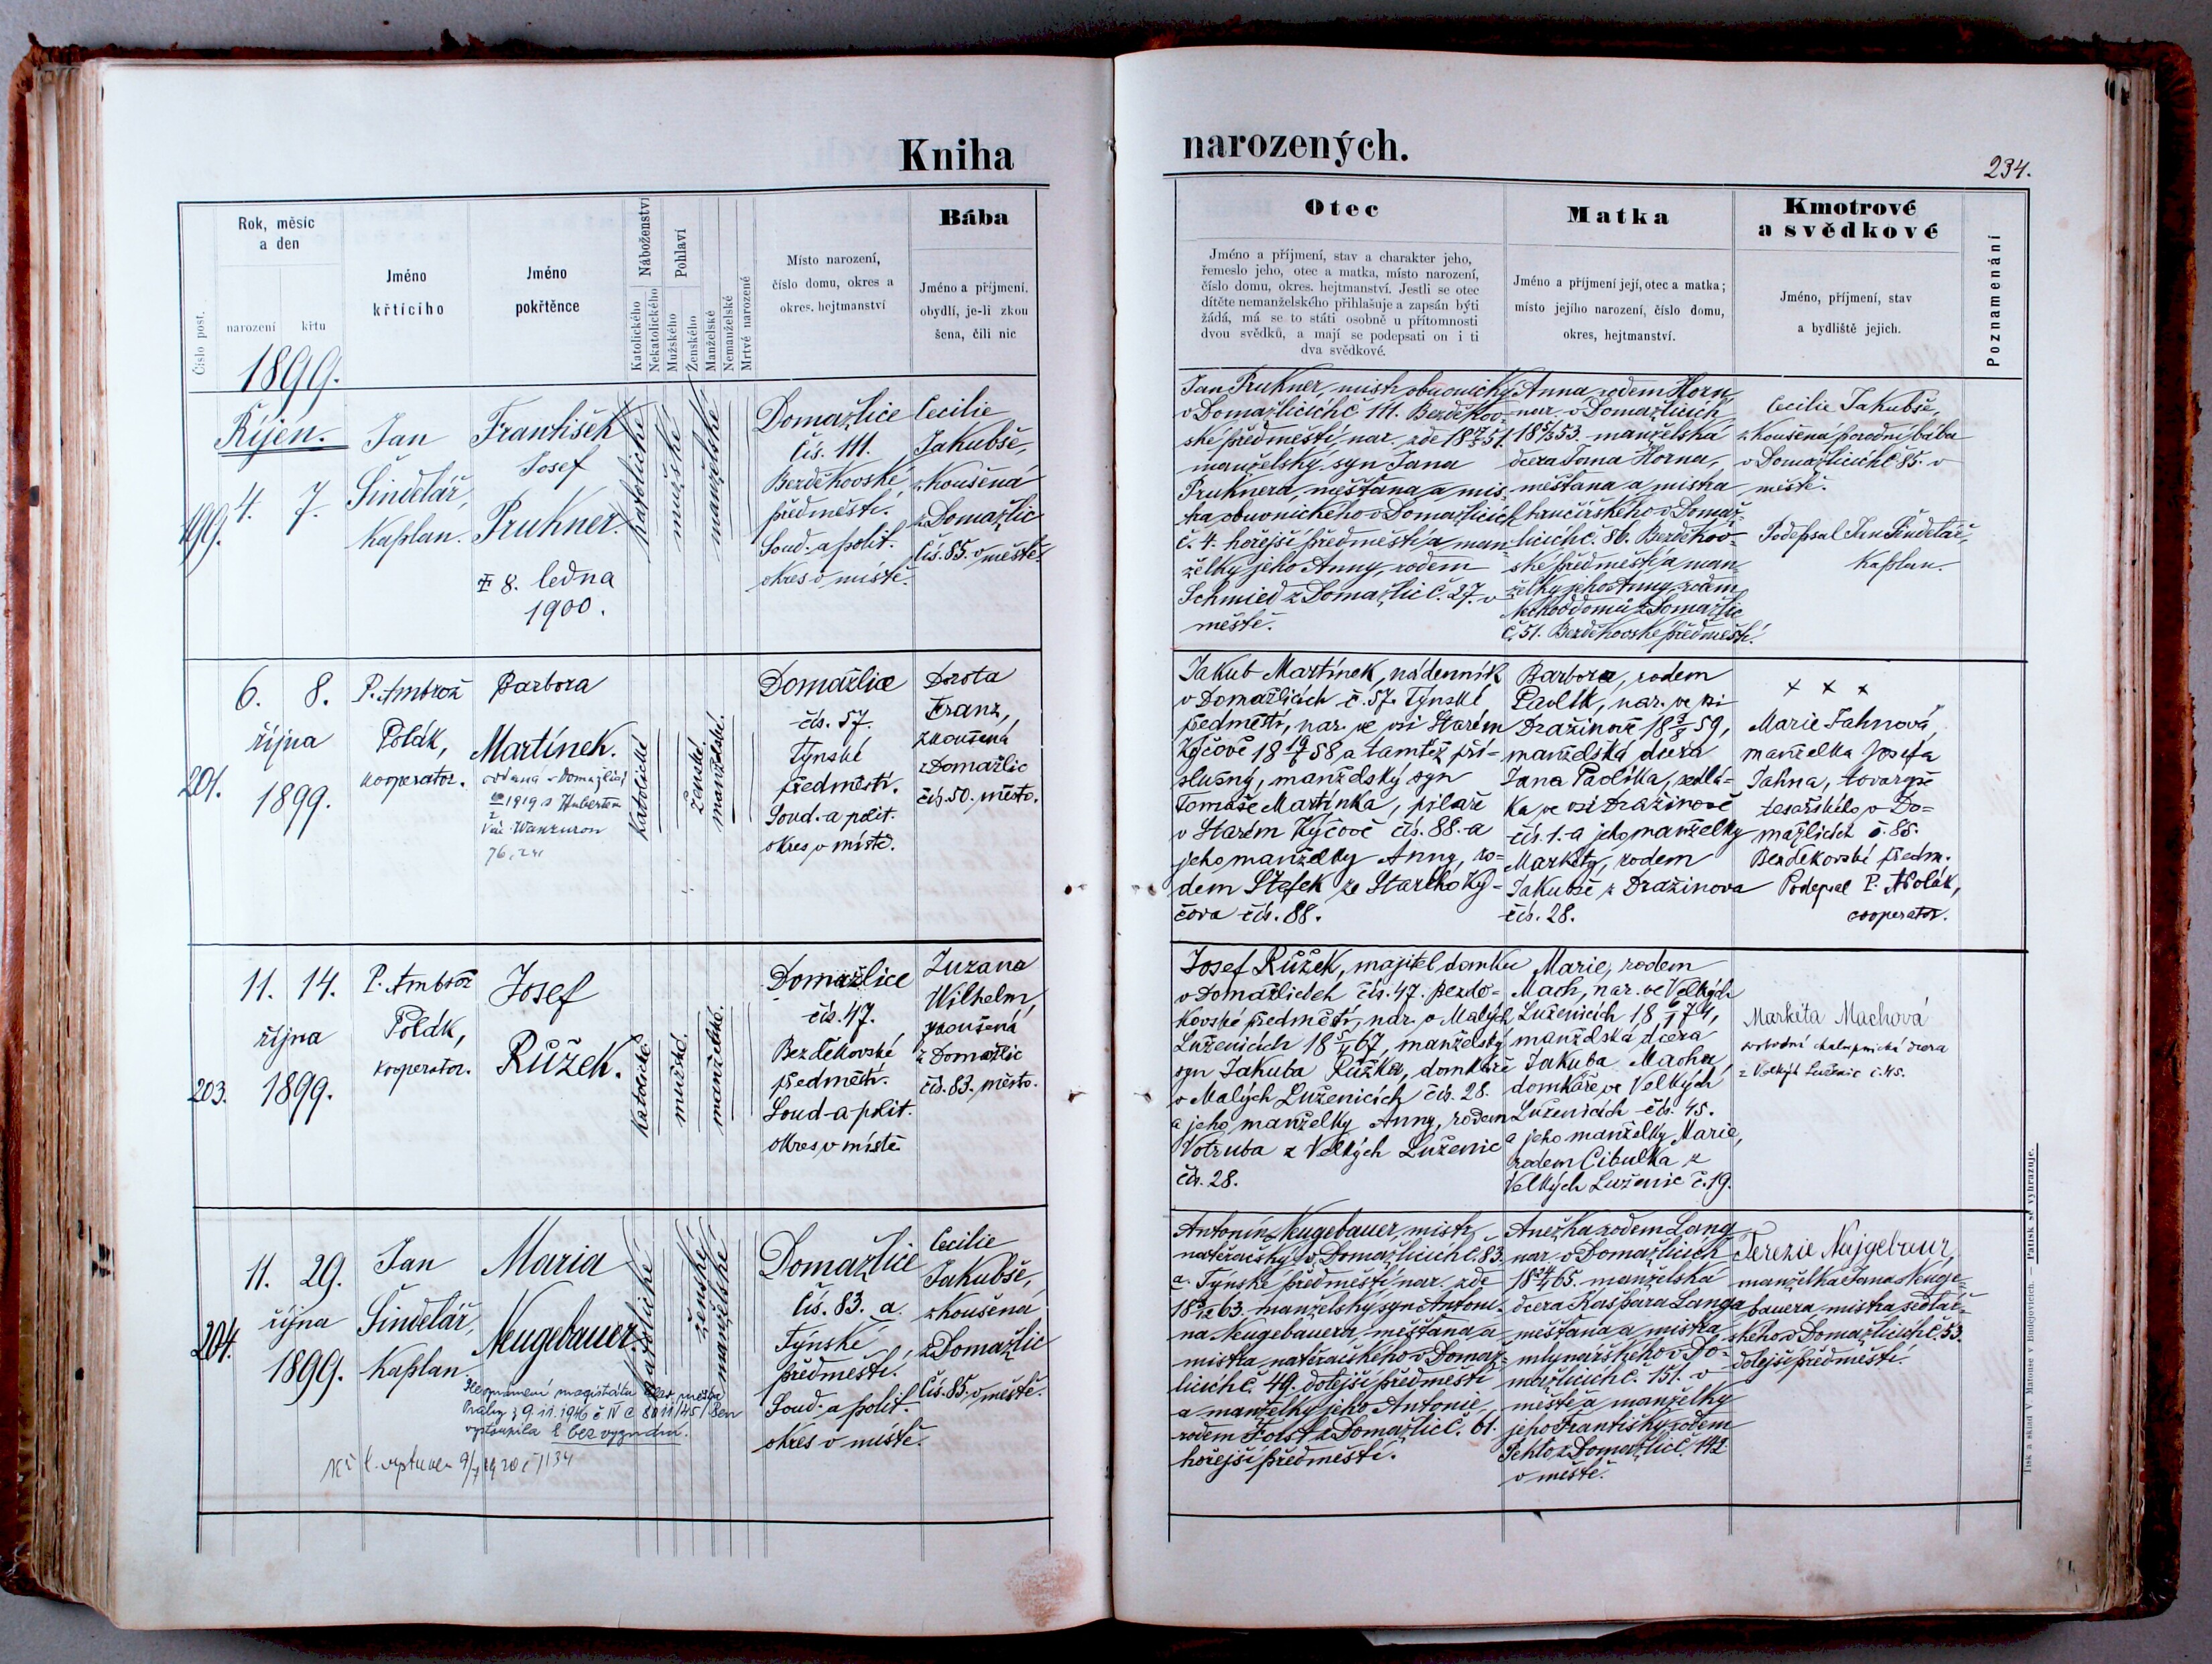 Kniha
Rok, měsíc
a den
Číslo post.
narození
křtu
Jméno
křtícího
Jméno
pokřtěnce
Náboženství
Katolického
Nekatolického
Pohlaví
Mužského
Ženského
Manželské
Nemanželské
Mrtvě narozené
Místo narození,
číslo domu, okres a
okres. hejtmanství
Bába
Jméno a příjmení,
obydlí, je-li zkou
šena, čili nic
1899.
Říjen.
199.
4.
7.
Jan
Šindelář,
Kaplan.
František
Josef
Prukner.
8. ledna
1900.
katolické
mužské
manželské
Domažlice
čís. 111.
Bezděkovské
předměstí.
Soud. a polit.
okres v místě.
Cecilie
Jakubše,
zkoušená
z Domažlic
čís. 85. v městě.
201.
6.
8.
října
1899.
P. Ambrož
Polák,
kooperator.
Barbora
Martínek.
1919 s Hubertem
katolické
ženské
manželské.
Domažlice
čís. 57.
Týnské
předměstí.
Soud. a polit.
okres v místě.
Dorota
Franz,
zkoušená
z Domažlic
čís. 50. město.
203.
11.
14.
října
1899.
P. Ambrož
Polák,
kooperator.
Josef
Růžek.
katolické
mužské
manželské
Domažlice
čís. 47.
Bezděkovské
předměstí.
Soud-a-polit.
okres v místě
Zuzana
Wilhelm,
zkoušená
z Domažlic
čís. 83. město.
204.
11.
29.
října
1899.
Jan
Šindelář,
Kaplan
Maria
Neugebauer
magistrátu
9.11.1946 č. IV
vystoupila bez vyznání.
katolické
ženské
manželské
Domažlice
čís. 83. a.
Týnské
předměstí.
Soud. a polit.
okres v místě.
Cecilie
Jakubše,
zkoušená
z Domažlic
čís. 85. v městě.
narozených.
234.
Otec
Jméno a příjmení, stav a charakter jeho,
řemeslo jeho, otec a matka, místo narození,
číslo domu, okres. hejtmanství. Jestli se otec
dítěte nemanželského přihlašuje a zapsán býti
žádá, má se to státi osobně u přítomnosti
dvou svědků, a mají se podepsati on i ti
dva svědkové.
Matka
Jméno a příjmení její, otec a matka;
místo jejího narození, číslo domu,
okres, hejtmanství.
Kmotrové
a svědkové
Jméno, příjmení, stav
a bydliště jejich.
Poznamenání
Jan Prukner, mistr obuvnický
v Domažlicích č. 111. Bezděkov-
ské předměstí, nar. zde
manželský syn Jana
Pruknera, měšťana a mis-
tra obuvnického v Domažlicích
č. 4. hořejší předměstí a man-
želky jeho Anny, rodem
Schmied z Domažlic č. 27. v
městě.
Anna rodem Horn,
nar. v Domažlicích
manželská
dcera Jana Horna,
měšťana a mistra
v Domaž-
licích č. 86. Bezděkov-
ské předměstí a man-
želky jeho Anny, rodem
z Domažlic
č. 51. Bezděkovské předměstí.
Cecilie Jakubše,
zkoušená porodní bába
v Domažlicích č. 85. v
městě.
Podepsal Jan Šindelář,
Kaplan.
Jakub Martínek, nádenník
v Domažlicích č. 57. Týnské
předměstí, nar. ve vsi Starém
Kýčově a tamtéž pří-
slušný, manželský syn
Tomáše Martínka, pilaře
v Starém Kýčově čís. 88. a
jeho manželky Anny, ro-
dem Štefek ze Starého Ký-
čova čís. 88.
Barbora, rodem
Pavlík, nar. ve vsi
Dražinově
manželská dcera
Jana Pavlíka, sedlá-
ka ve vsi Dražinově
čís. 1. a jeho manželky
Markéty, rodem
Jakubše z Dražinova
čís. 28.
+ + +
Marie Jahnová,
manželka Josefa
Jahna, tovaryše
tesařského v Do-
mažlicích č. 88.
Bezděkovské předm.
Podepsal P. A. Polák,
cooperator.
Josef Růžek, majitel domku
v Domažlicích čís. 47. Bezdě-
kovské předměstí, nar. v Malých
Luženicích manželský
syn Jakuba Růžka, domkáře
v Malých Luženicích čís. 28.
a jeho manželky Anny, rodem
Votruba z Velkých Luženic
čís. 28.
Marie, rodem
Mach, nar. ve Velkých
Luženicích
manželská dcera
Jakuba Macha,
domkáře ve Velkých
Luženicích čís. 45.
a jeho manželky Marie,
rodem Cibulka z
Velkých Luženic č. 19.
Markéta Machová
svobodná chalupnická dcera
z Velkých Luženic č. 45.
Antonín Neugebauer, mistr
natěračský v Domažlicích č. 83.
a. Týnské předměstí, nar. zde
manželský syn Antoní-
na Neugebauera, měšťana a
mistra natěračského v Domaž-
licích č. 49. dolejší předměstí
a manželky jeho Antonie,
rodem z Domažlic č. 61.
hořejší předměstí.
Anežka rodem Lang
nar. v Domažlicích
manželská
dcera Kašpara Langa
měšťana a mistra
mlynářského v Do-
mažlicích č. 151. v
městě a manželky
jeho Františky, rodem
z Domažlic č. 142
v městě.
Terezie Najgebaur,
manželka Jana Neuge-
bauera, mistra sedlář-
ského v Domažlicích č. 53.
dolejší předměstí.
Tisk a sklad V. Matouše v Budějovicích. Patisk se vyhrazuje.